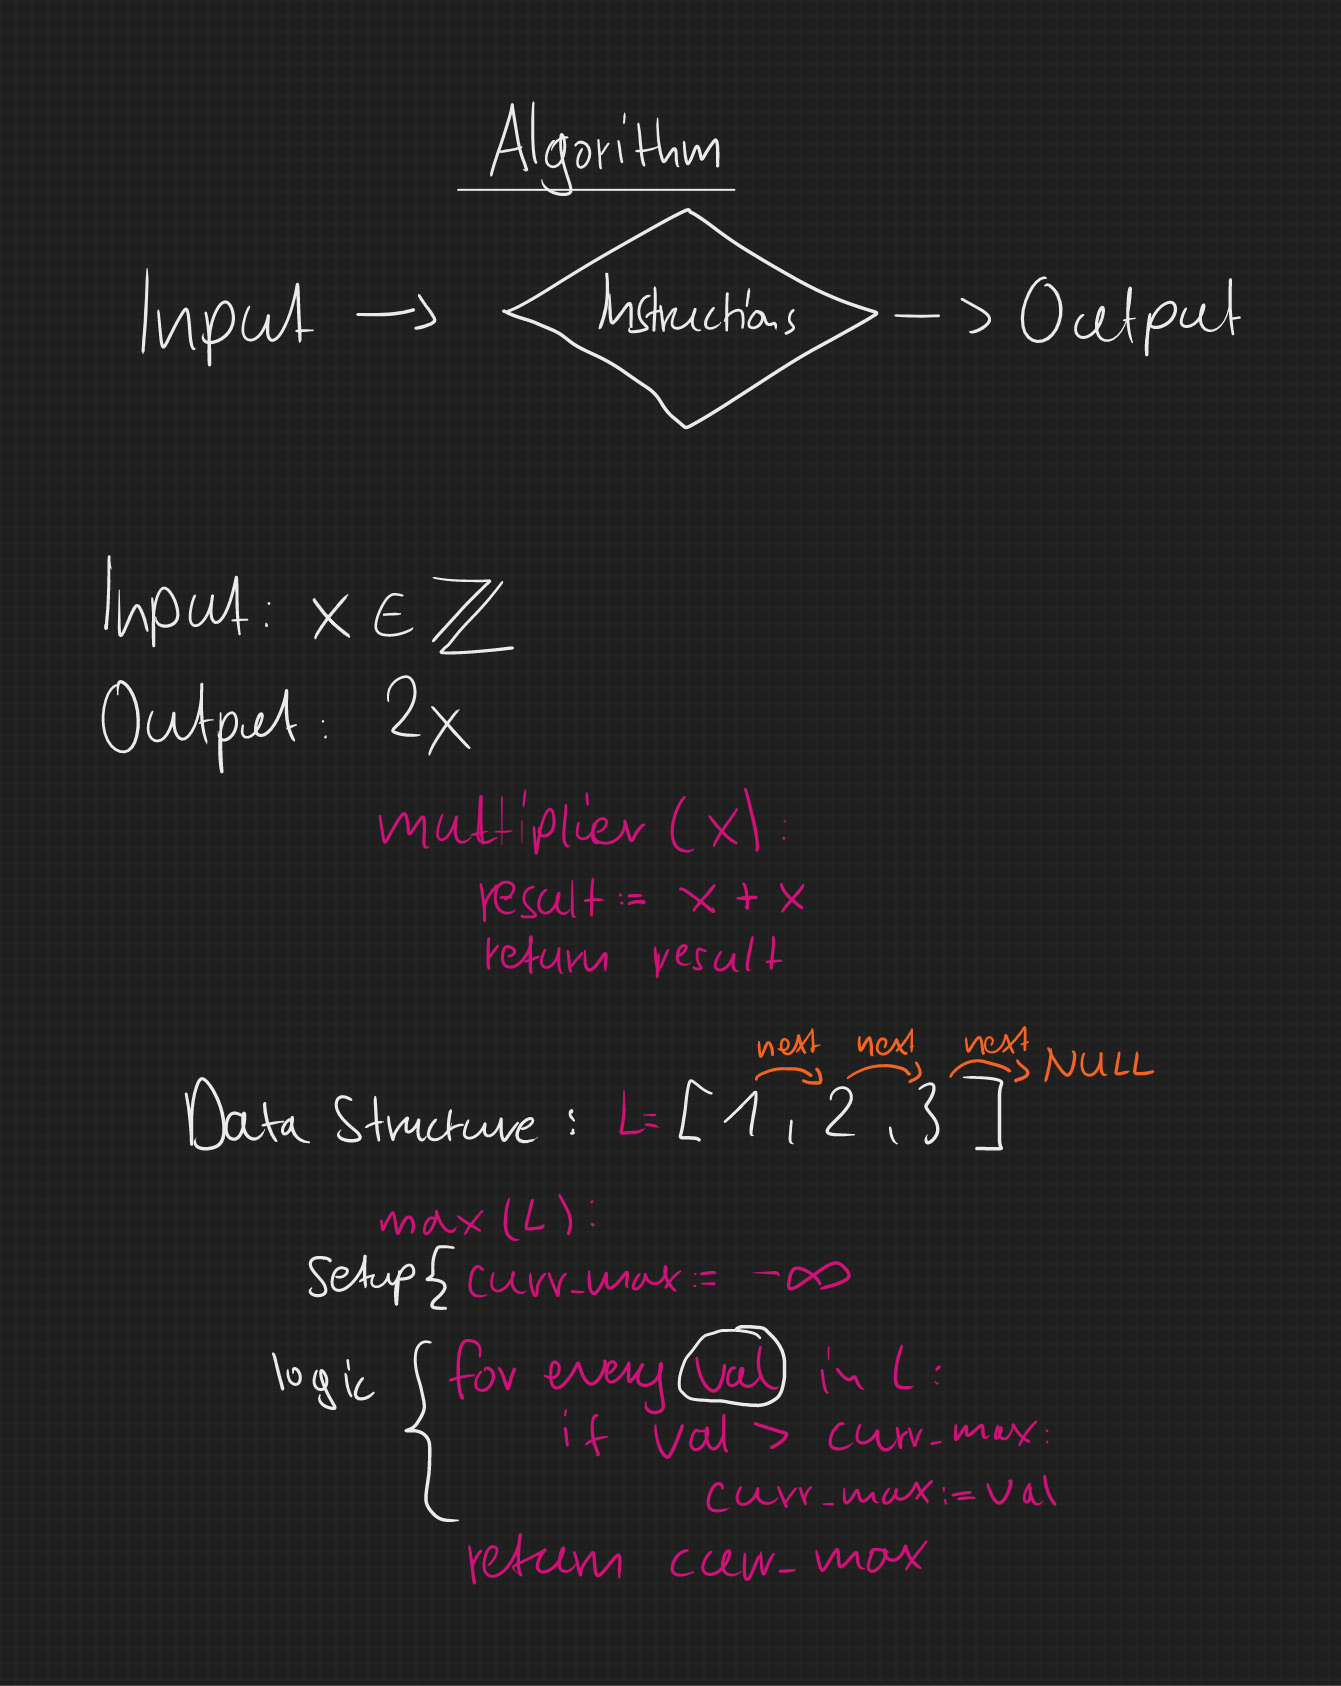 Algorithm
Input -> Instructions -> Output
Input: x ∈ ℤ
Output: 2x
multiplier (x):
result := x + x
return result
next next next NULL
Data Structure: L= [1, 2, 3]
max(L):
Setup { curr_max := -∞
logic { for every val in L:
if val > curr_max:
curr_max := val
return curr_max